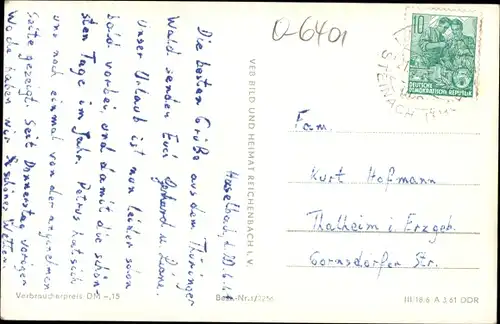 O-6401
10
DEUTSCHE
DEMOKRATISCHE REPUBLIK
STEINACH
Haselbach, d. 20.6.
Die besten Grüße aus dem Thüringer
Wald senden Euch Gerhard u.
Unser Urlaub ist nun leider schon
bald vorbei, und damit die schön-
sten Tage im Jahr. Petrus hat sich
uns noch einmal von der angenehmen
Seite gezeigt. Seit Donnerstag voriger
Woche haben wir schönes Wetter.
VEB BILD UND HEIMAT REICHENBACH I. V.
Fam.
Kurt Hofmann
Thalheim i. Erzgeb.
Gornsdorfer Str.
Verbraucherpreis DM -,15
Best.-Nr. 1/2256
III/18/6 A 3.61 DDR